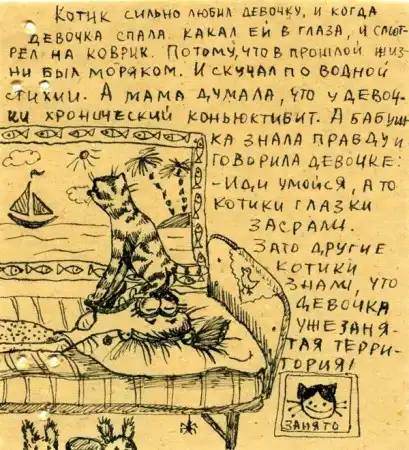 Котик сильно любил девочку, и когда
девочка спала какал ей в глаза, и смот-
рел на коврик. Потому, что в прошлой жиз-
ни был моряком. И скучал по водной
стихии. А мама думала, что у девоч-
ки хронический коньюктивит. А бабуш-
ка знала правду и
говорила девочке:
-Иди умойся, а то
котики глазки
засрали.
Зато другие
котики
знали, что
девочка
уже заня-
тая терри-
тория!
ЗАНЯТО